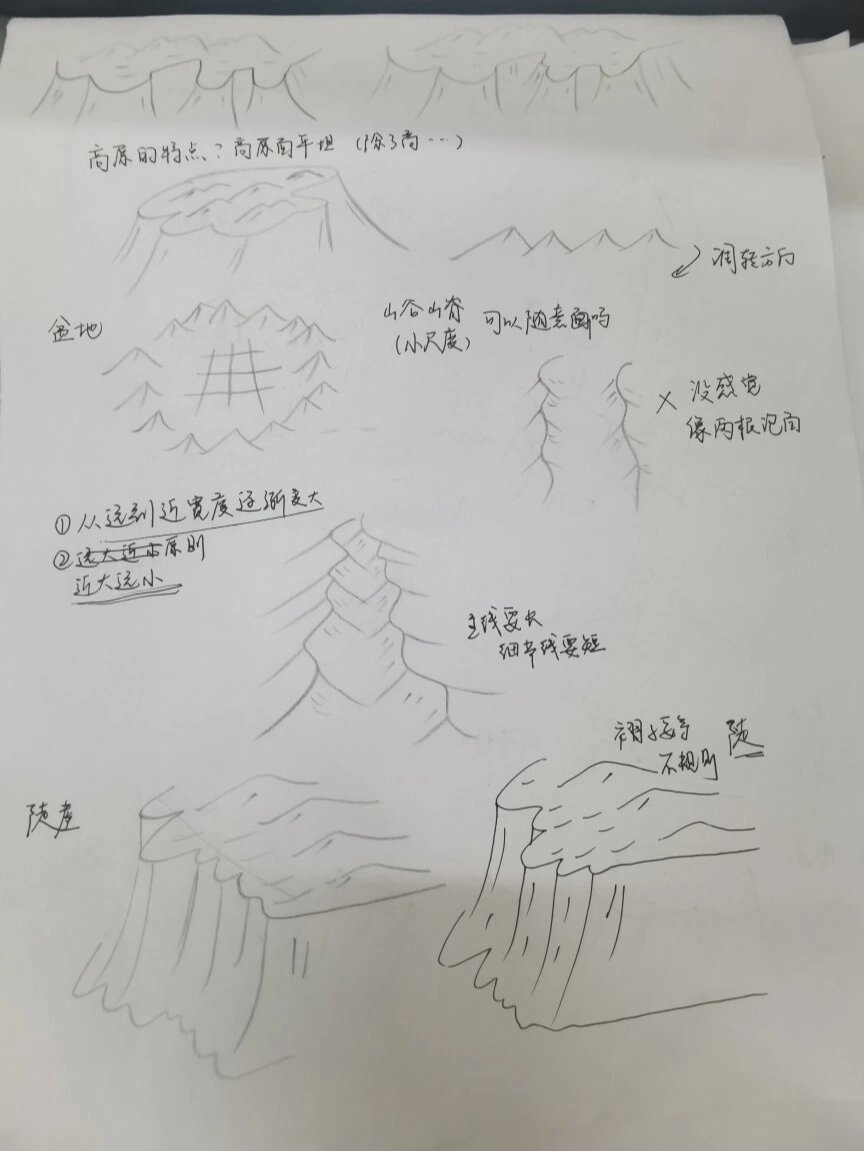 高原的特点:高原面平坦(除了高…)
调转方向
盆地
山谷山脊
(小尺度)
可以随意画吗
× 没感觉
像两根泥肉
①从远到近宽度逐渐变大
②远大近小原则
近大远小
主线要长
细节线要短
褶
不规则
陡
陡崖